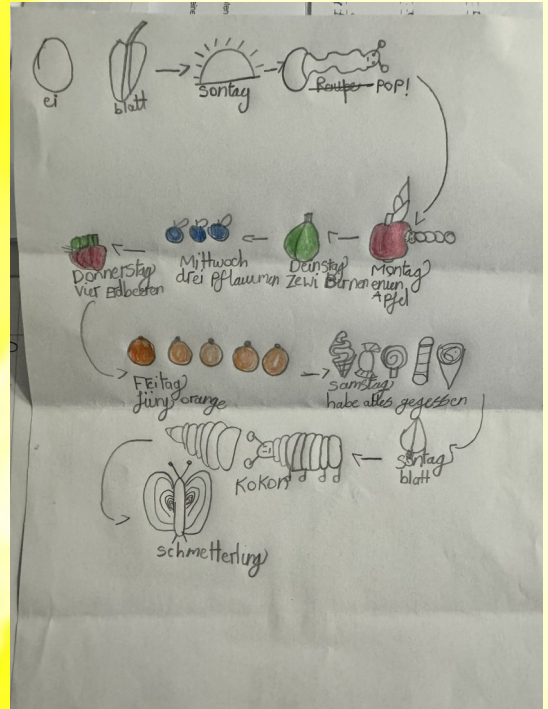 ei
blatt
sontag
Raupe POP!
Montag
enun
Apfel
Deinstag
Zewi Birnen
Mittwoch
drei Pflaumen
Donnerstag
Vier Erdbeeren
FEitag
fünf orange
samstag
habe alles gegessen
sontag
blatt
Kokon
schmetterling